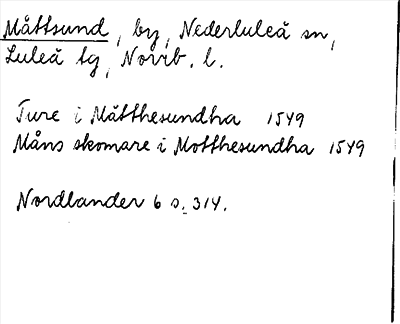 Måttsund, by, Nederluleå sn,
Luleå tg, Norrb. l.
Ture i Måtthesundha 1549
Måns skomare i Motthesundha 1549
Nordlander 6 s. 314.